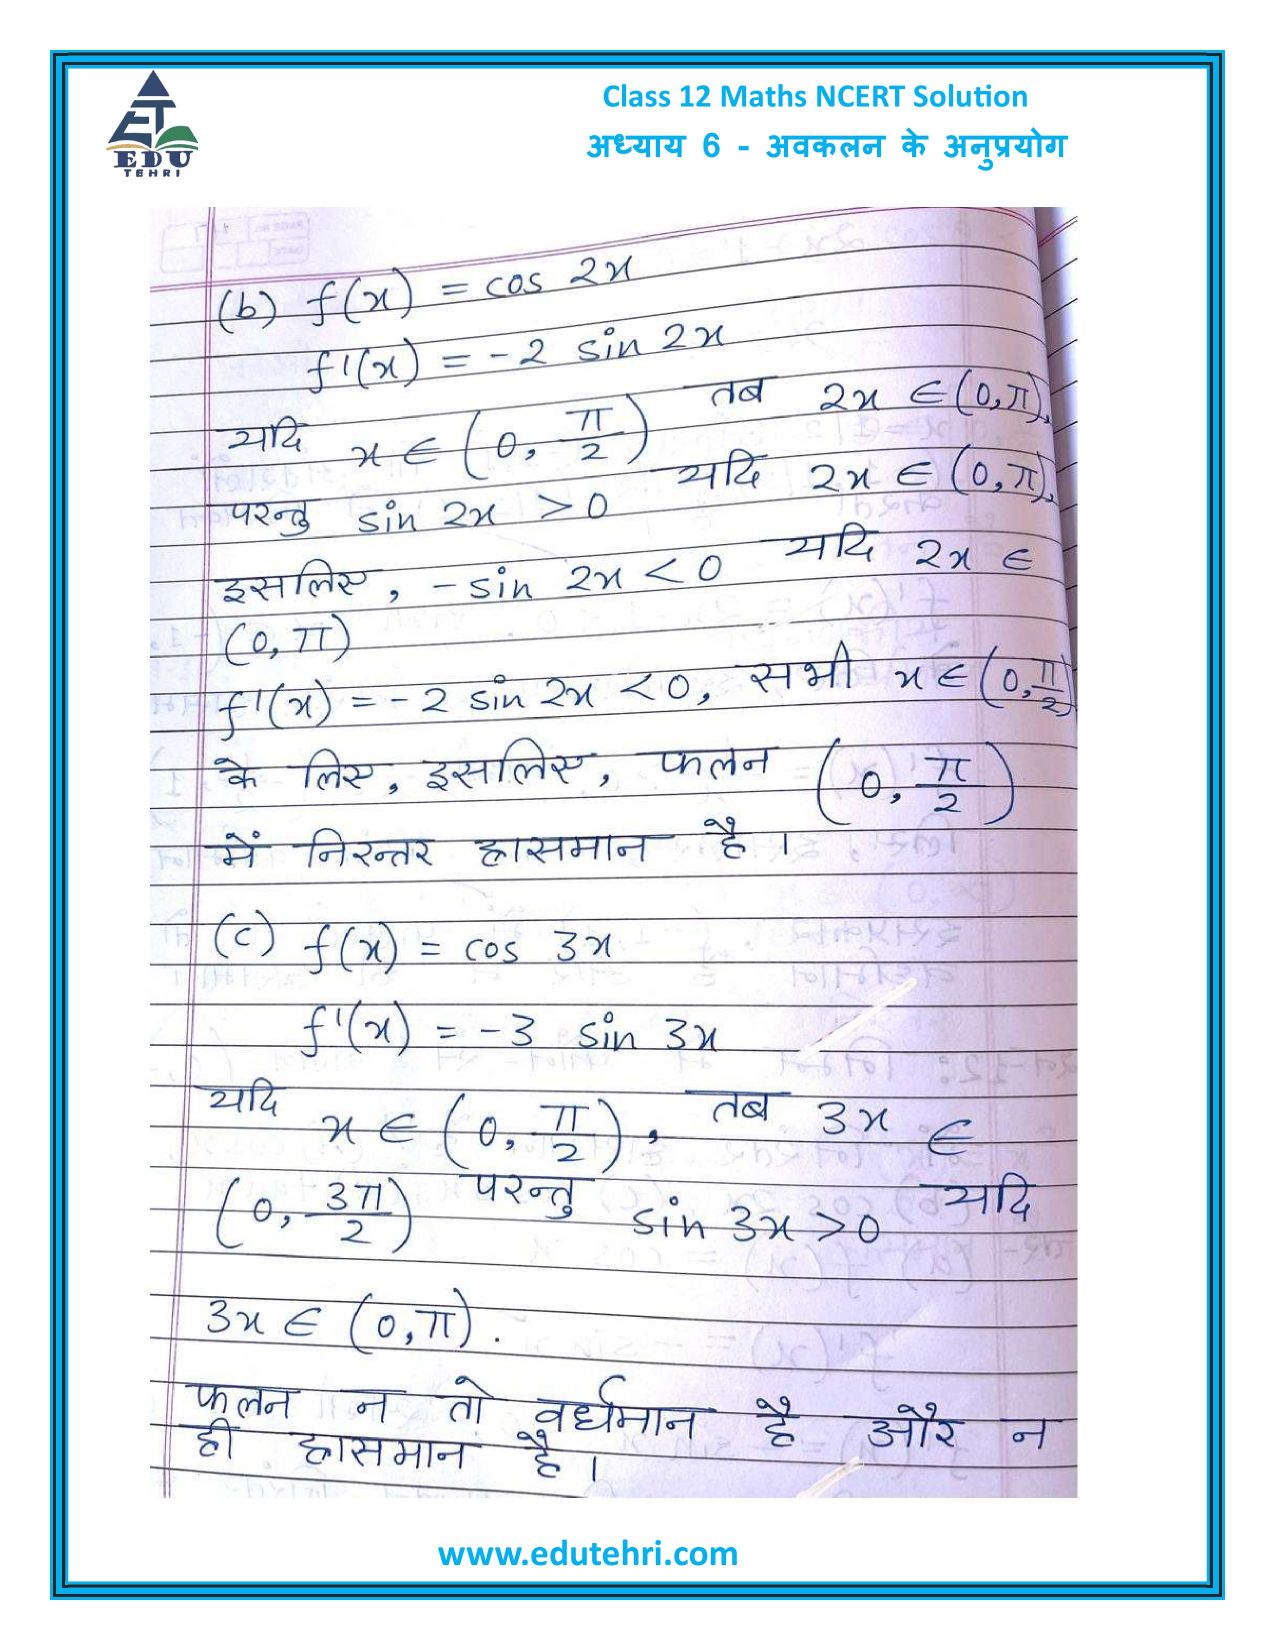 ET
EDU
TEHRI
Class 12 Maths NCERT Solution
अध्याय 6 - अवकलन के अनुप्रयोग
(b) f(x) = cos 2x
f'(x) = -2 sin 2x
यदि x ∈ (0, π/2) तब 2x ∈ (0, π),
परन्तु sin 2x > 0 यदि 2x ∈ (0, π),
इसलिए, - sin 2x < 0 यदि 2x ∈
(0, π)
f'(x) = -2 sin 2x < 0, सभी x ∈ (0, π/2)
के लिए, इसलिए, फलन (0, π/2)
में निरन्तर ह्रासमान है।
(c) f(x) = cos 3x
f'(x) = -3 sin 3x
यदि x ∈ (0, π/2), तब 3x ∈
(0, 3π/2) परन्तु sin 3x > 0 यदि
3x ∈ (0, π).
फलन न तो वर्धमान है और न
ही ह्रासमान है।
www.edutehri.com